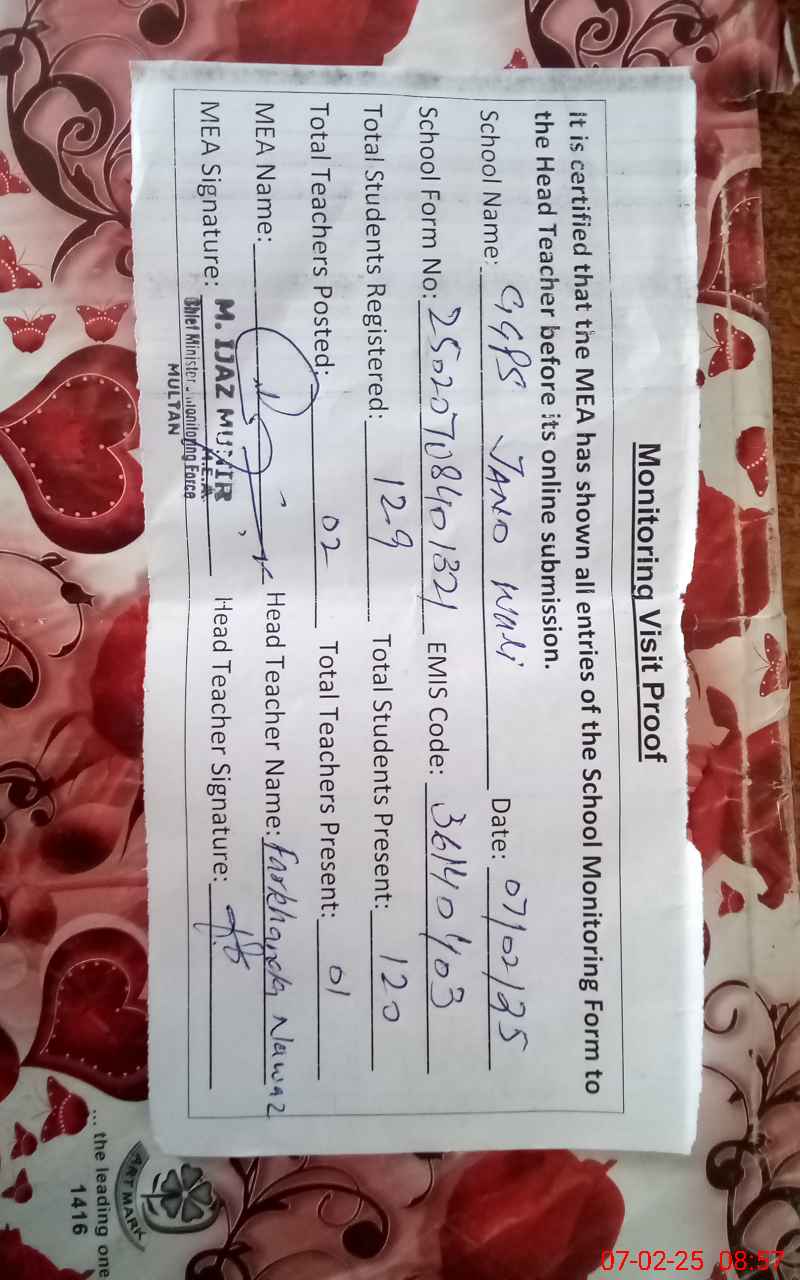 Monitoring Visit Proof
it is certified that the MEA has shown all entries of the School Monitoring Form to
the Head Teacher before its online submission.
School Name: GGPS JANO Wali Date: 07/02/25
School Form No: 25020708401321 EMIS Code: 36140403
Total Students Registered: 129 Total Students Present: 120
Total Teachers Posted: 02 Total Teachers Present: 01
MEA Name: Head Teacher Name: Farkhanda Nawaz
MEA Signature: Head Teacher Signature:
M. IJAZ MUNIR
M.E.A
Chief Minister Monitoring Force
MULTAN
ART MARK
... the leading one
1416
07-02-25 08:57